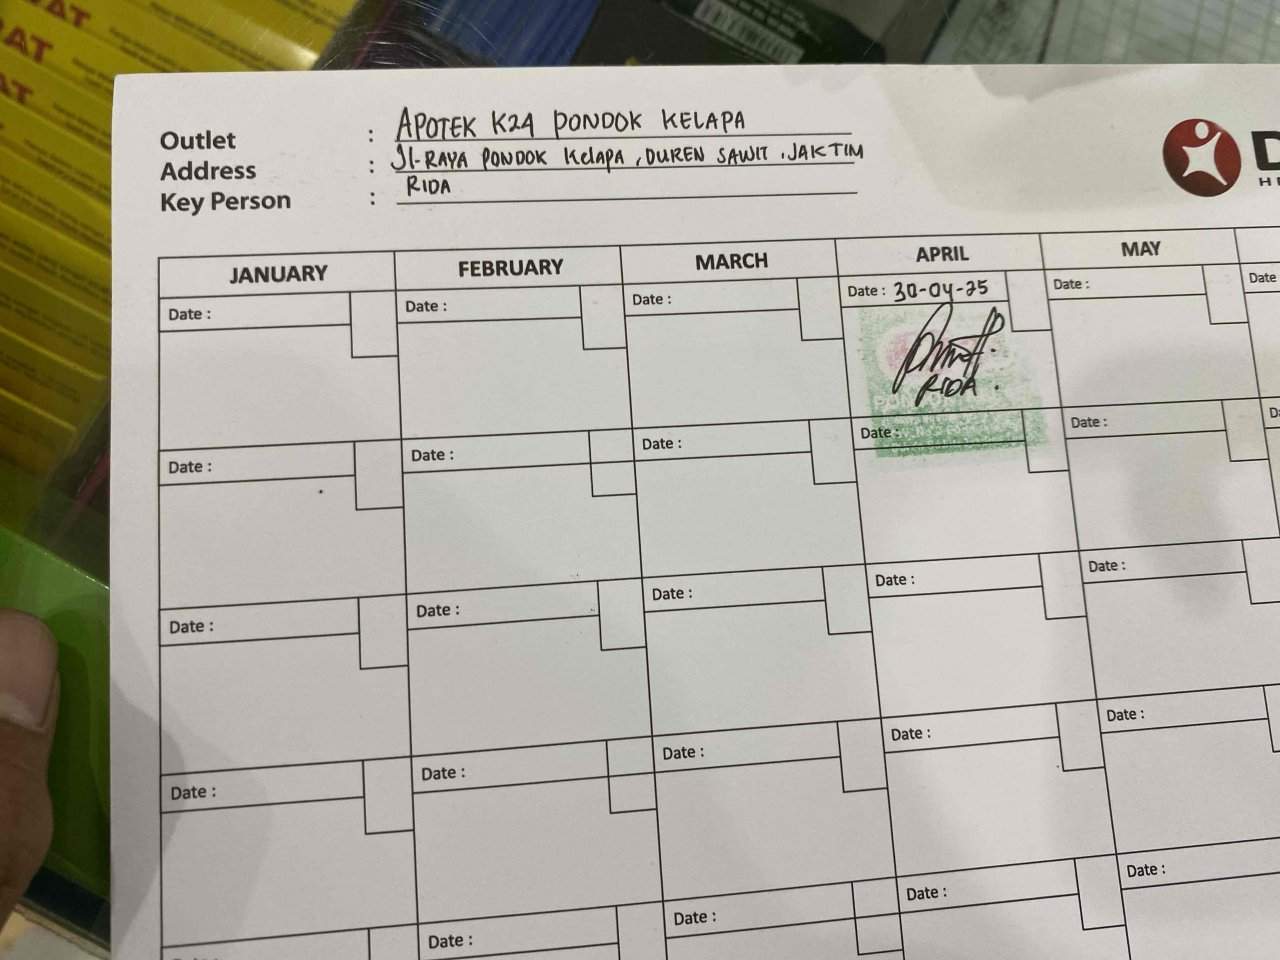 Outlet : APOTEK K24 PONDOK KELAPA
Address : Jl-RAYA PONDOK Kelapa, DUREN SAWIT, JAKTIM
Key Person : RIDA
JANUARY FEBRUARY MARCH APRIL MAY
Date : Date : Date : Date : 30-04-25 Date : Date
RIDA.
Date : Date : Date : Date : Date :
Date : Date : Date : Date : Date :
Date : Date : Date : Date : Date :
Date : Date : Date : Date :